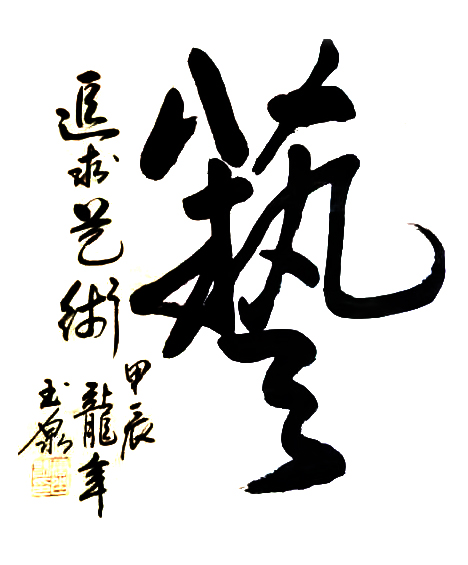 藝
追求艺術
甲辰
龍年
玉泉